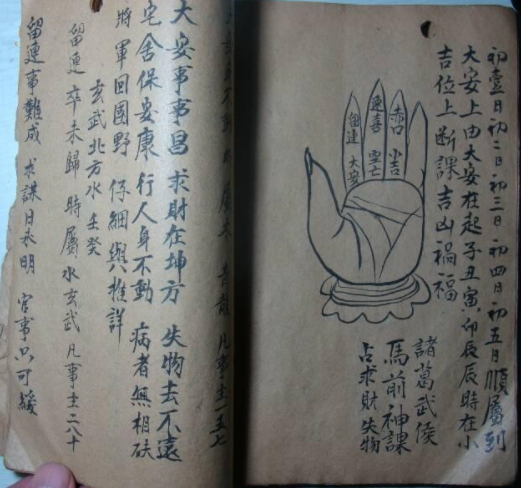 初壹日初二日初三日初四日初五日順屬到
大安上由大安在起子丑寅卯辰辰時在小
吉位上断課吉凶禍福
赤口 小吉
速喜 空亡
留連 大安
諸葛武侯
馬前神課
占求財失物
青龍 凡事主一五七
大安事事昌 求財在坤方 失物去不遠
宅舍保安康 行人身不動 病者無相砆
將軍回國野 仔細與推詳
玄武北方水 壬癸
留連 卒未歸 時屬水玄武 凡事主二八十
留連事難成 求謀日未明 官事只可緩